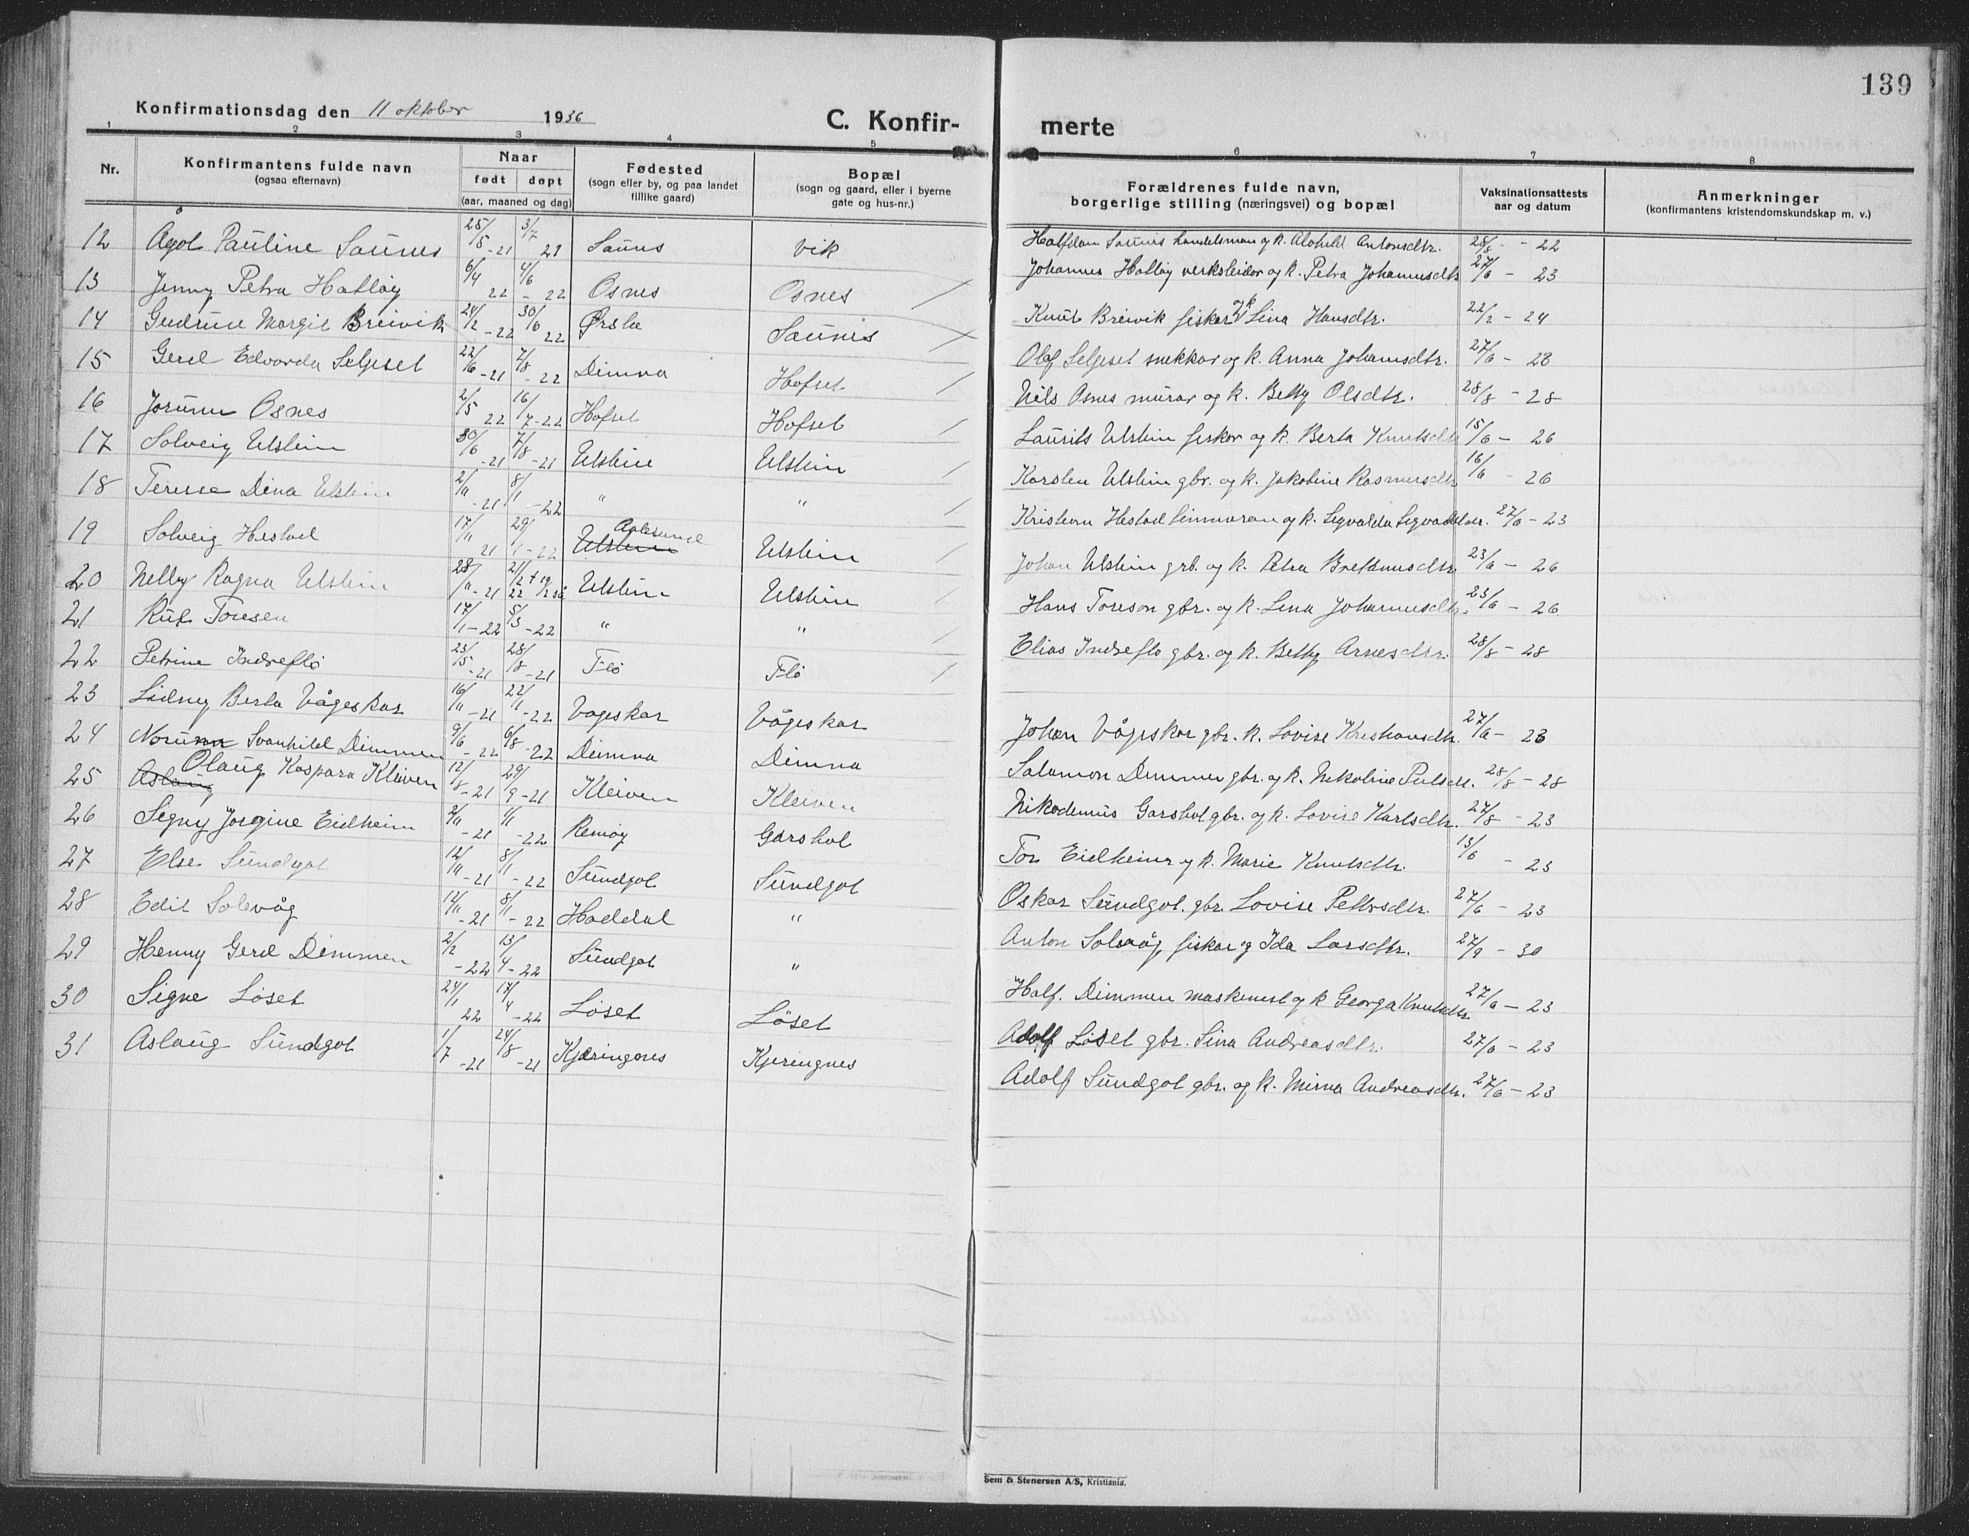 139
Konfirmationsdag den 11 oktober 1936
C. Konfir-
merte
1 2 3 4 5 6 7 8
Nr.
Konfirmantens fulde navn
(ogsaa efternavn)
Naar
født døpt
(aar, maaned og dag)
Fødested
(sogn eller by, og paa landet
tillike gaard)
Bopæl
(sogn og gaard, eller i byerne
gate og hus-nr.)
Forældrenes fulde navn,
borgerlige stilling (næringsvei) og bopæl
Vaksinationsattests
aar og datum
Anmerkninger
(konfirmantens kristendomskundskap m. v.)
12 Ågot Pauline Saunes 25/5 -21 3/7 21 Saunes Vik Halfdan Saunes handelsman og k. Alvhild Antonsdtr. 28/8 - 22
13 Jenny Petra Hatløy 6/4 22 4/6 - 22 Osnes Osnes Johannes Hatløy verksleidar og k. Petra Johannesdtr 27/6 - 23
14 Gudrun Margit Breivik 24/2 -22 30/6 22 Ørsta Saunes Knut Breivik fiskar og k Lina Hansdtr. 22/2 - 24
15 Gerd Edvarda Seljeset 22/6 -21 7/8 - 22 Dimna Hofset Olaf Seljeset snekkar og k. Anna Johansdtr. 27/6 - 23
16 Jorunn Osnes 2/5 22 16/7 -22 Hofset Hofset Nils Osnes murar og k. Betty Olsdtr. 28/8 - 28
17 Solveig Ulstein 30/6 -21 7/8 -21 Ulstein Ulstein Laurits Ulstein fiskar og k. Berta Knutsdtr 15/6 - 26
18 Terese Dina Ulstein 2/11 -21 8/1 -22 " " Karsten Ulstein gbr. og k. Jakobine Rasmusdtr 16/6 - 26
19 Solveig Hestad 17/11 21 29/1 -22 Ulstein Aalesund Ulstein Kristian Hestad tømmerman og k. Sigvalda Sigvaldsdtr. 27/6 - 23
20 Nelly Ragna Ulstein 28/11 -21 2/2 22 Ulstein Ulstein Johan Ulstein grb. og k. Petra Breklmusdtr 23/6 - 26
21 Rut Toresen 17/1 -22 5/3 -22 " " Hans Toreson gbr. og k. Lina Johannesdtr. 23/6 - 26
22 Petrine Indreflø 23/5 -21 28/8 -21 Flø Flø Elias Indreflo gbr. og k. Betty Arnesdtr. 28/8 - 28
23 Lidney Berta Vågeskar 16/11 -21 22/1 -22 Vågeskar Vågeskar Johan Vågeskar gbr. k. Lovise Kristiansdtr. 27/6 - 23
24 Norunn Svanhild Dimmen 9/6 -22 6/8 -22 Dimna Dimna Salamon Dimmen gbr. og k. Nikoline Pulsdtr. 28/8 - 28
25 Aslaug Olaug Kaspara Kleiven 12/8 -21 29/9 -21 Kleiven Kleiven Nikodemus Garshol gbr. og k. Lovise Karlsdtr. 27/8 - 23
26 Signy Jorgine Eidheim 2/11 -21 1/11 -22 Remøy Garshol Tor Eidheim og k. Marie Knutsdtr. 13/6 - 23
27 Else Sundgot 12/11 -21 8/1 -22 Sundgot Sundgot Oskar Sundgot. gbr. Lovise Pettersdtr. 27/6 - 23
28 Edit Solevåg 14/11 -21 8/1 - 22 Haddal " Anton Solevåg, fiskar og Ida Larsdtr. 27/9 - 30
29 Henny Gerd Dimmen 2/2 -22 13/4 -22 Sundgot " Half. Dimmen maskinist og k Georga Knutsdtr. 27/6 - 23
30 Signe Løset 24/1 22 17/4 -22 Løset Løset Adolf Løset gbr. Lina Andreasdtr. 27/6 - 23
31 Aslaug Sundgot 1/7 -21 24/8 -21 Kjeringnes Kjeringnes Adolf Sundgot gbr. og k. Mirna Andreasdtr. 27/6 - 23
Sem & Stenersen A/S, Kristiania.